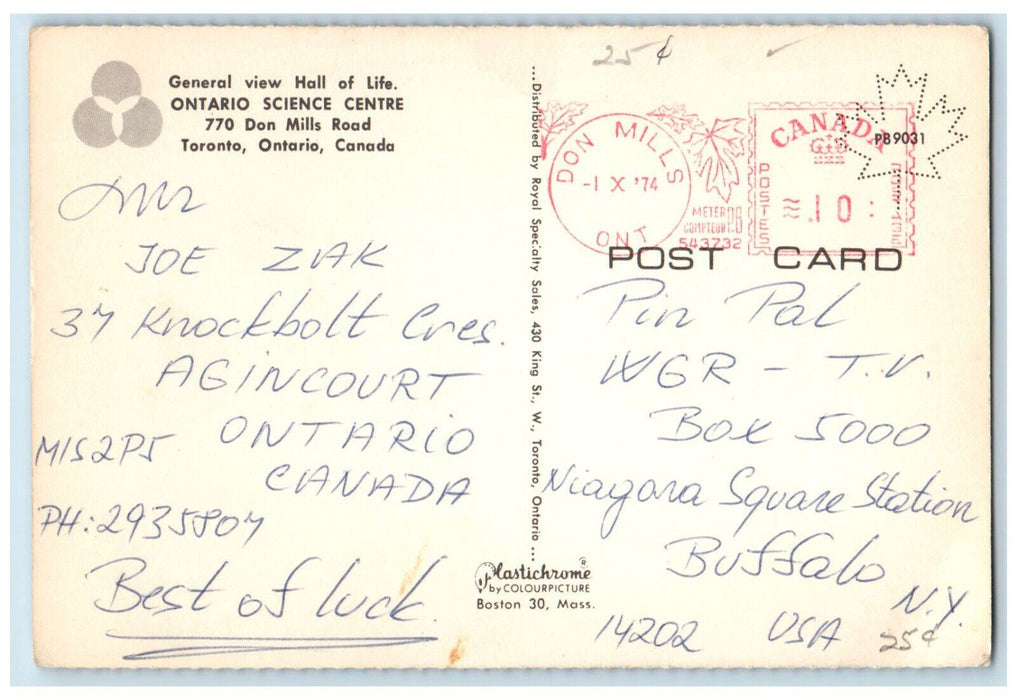 General view Hall of Life.
ONTARIO SCIENCE CENTRE
770 Don Mills Road
Toronto, Ontario, Canada
JOE ZAK
37 Knockbolt Cres.
AGINCOURT
ONTARIO
CANADA
M1S2P5
PH:2935807
Best of luck.
...Distributed by Royal Specialty Sales, 430 King St., W., Toronto, Ontario...
Plastichrome®
by COLOURPICTURE
Boston 30, Mass.
25¢
DON MILLS
-1 X '74
ONT
METER
COMPTEUR
543732
CANADA
POSTES
.10:
PB9031
POST CARD
Pin Pal
WGR - T.V.
Box 5000
Niagara Square Station
Buffalo
N.Y.
14202 USA
25¢